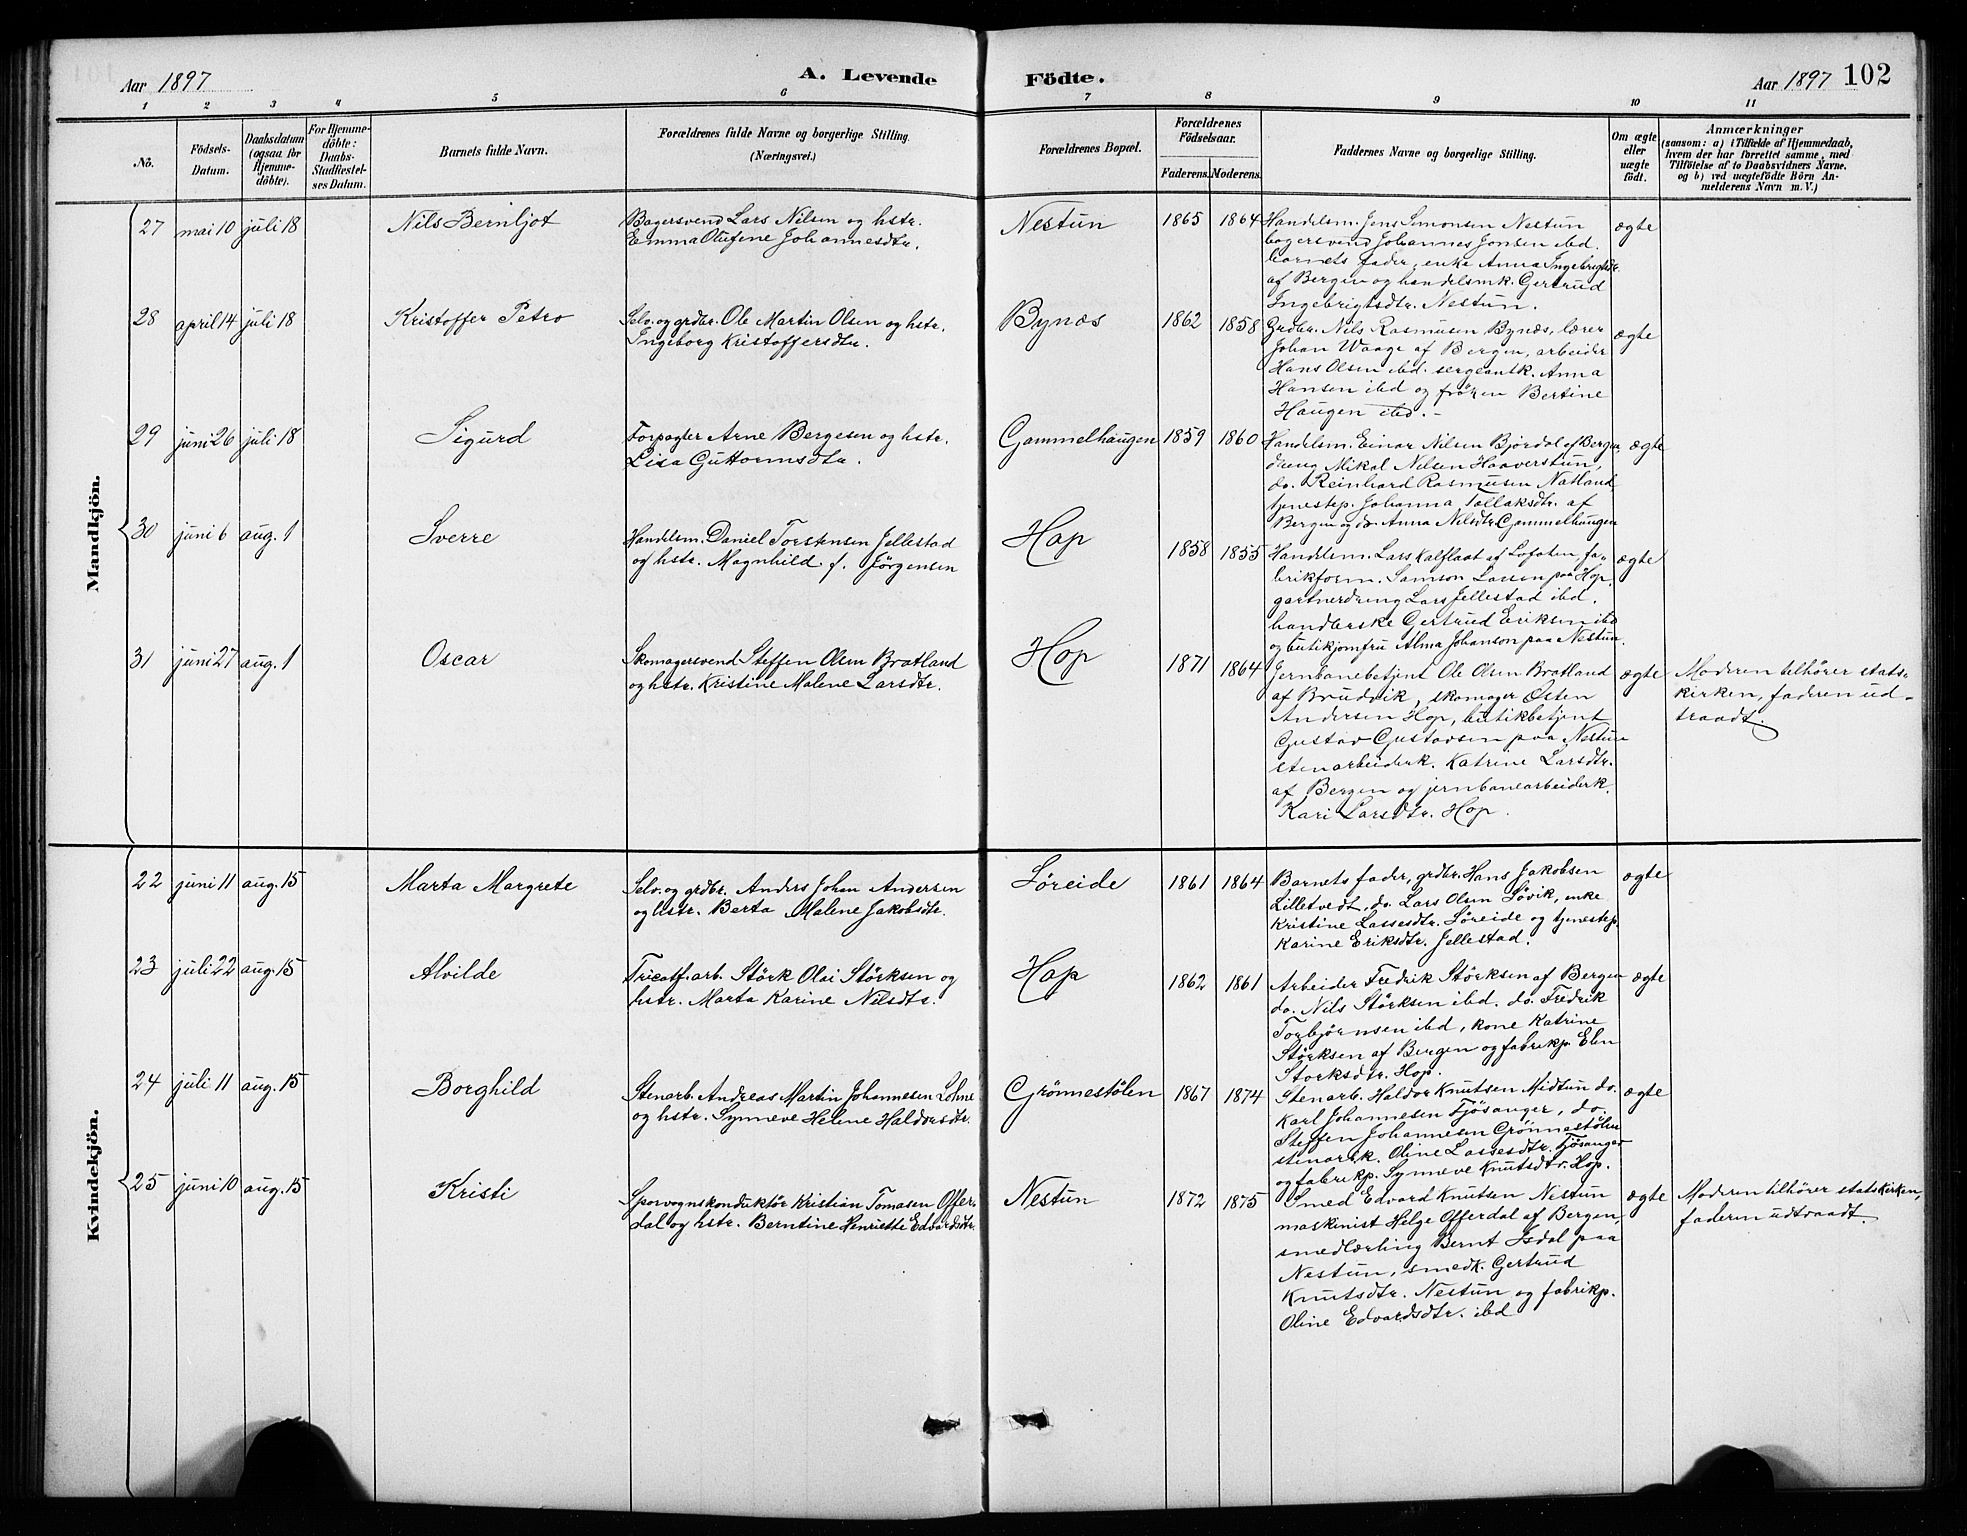 Aar 1897
A. Levende
Födte.
Aar 1897 102
1 2 3 4 5 6 7 8 9 10 11
No.
Födsels-
Datum.
Daabsdatum
(ogsaa for
Hjemme-
döbte).
For Hjemme-
döbte:
Daabs-
Stadfæstel-
ses Datum.
Barnets fulde Navn.
Forældrenes fulde Navne og borgerlige Stilling.
(Næringsvei.)
Forældrenes Bopæl.
Forældrenes
Födselsaar.
Faderens. Moderens.
Faddernes Navne og borgerlige Stilling.
Om ægte
eller
uægte
födt.
Anmærkninger
(saasom: a) i Tilfælde af Hjemmedaab,
hvem der har forrettet samme, med
Tilföielse af to Daabsvidners Navne.
og b) ved uægtefödte Börn An-
melderens Navn m. V.)
Mandkjön.
27 mai 10 juli 18 Nils Bernljot
Bagersvend Lars Nilsen og hstr.
Emma Olufine Johannesdtr.
Nestun 1865 1864
Handelsm. Jens Simonsen Nestun
bagersvend Johannes Jonsen ibd.
barnets fader, enke Anna Ingebrigtsdtr.
af Bergen og handelsmk. Gertrud
Ingebrigtsdtr. Nestun.
ægte
28 april 14 juli 18 Kristoffer Petro
Selv. og grdbr. Ole Martin Olsen og hstr.
Ingeborg Kristoffersdtr.
Bynæs 1862 1858
Grdbr. Nils Rasmusen Bynæs, lærer
Johan Waage af Bergen, arbeider
Hans Olsen ibd. sergeantk. Anna
Hansen ibd og frøken Bertine
Haugen ibd. -
ægte
29 juni 26 juli 18 Sigurd
Forpagter Arne Bergesen og hstr.
Lisa Guttormsdtr.
Gammelhaugen 1859 1860
Handelsm. Einar Nilsen Bjørdal af Bergen,
dreng Mikal Nilsen Haaverstun,
do. Reinhard Rasmusen Natland,
tjenestep. Johanna Tollaksdtr. af
Bergen og do. Anna Nilsdtr. Gammelhaugen
ægte
30 juni 6 aug. 1 Sverre
Handelsm. Daniel Torstensen Jellestad
og hstr. Magnhild f. Jørgensen
Hop 1858 1855
Handelsm. Lars Kalflaat af Lofoten, fa-
brikform. Samson Larsen paa Hop,
gartnerdreng Lars Jellestad ibd.
handlerske Gertrud Eriksen ibd
og butikjomfru Alma Johanson paa Nestun.
ægte
31 juni 27 aug. 1 Oscar
Skomagersvend Steffen Olsen Bratland
og hstr. Kristine Malene Larsdtr.
Hop 1871 1864
Jernbanebetjent Ole Olsen Bratland
af Brudvik, skomager Østen
Andersen Hop, butikbetjent
Gustav Gustavsen paa Nestun
stenarbeiderk. Katrine Larsdtr.
af Bergen og jernbanearbeiderk.
Kari Larsdtr. Hop.
ægte
Moderen tilhører stats-
kirken, faderen ud-
traadt.
Kvindekjön.
22 juni 11 aug. 15 Marta Margrete
Selv. og grdbr. Anders Johan Andersen
og hstr. Berta Malene Jakobsdtr.
Søreide 1861 1864
Barnets fader, grdbr. Hans Jakobsen
Lilletvedt, do. Lars Olsen Søvik, enke
Kristine Lassesdtr. Søreide og tjenestep.
Karine Eriksdtr. Jellestad.
ægte
23 juli 22 aug. 15 Alvilde
Tricotf.arb. Størk Olai Størksen og
hstr. Marta Karine Nilsdtr.
Hop 1862 1861
Arbeider Fredrik Størksen af Bergen
do. Nils Størksen ibd. do. Fredrik
Torbjørnsen ibd, kone Katrine
Størksen af Bergen og fabrikp. Elen
Storksdtr. Hop.
ægte
24 juli 11 aug. 15 Borghild
Stenarb. Andreas Martin Johannesen Lohne
og hstr. Synneve Helene Haldorsdtr.
Grønnestølen 1867 1874
Stenarb. Haldor Knutsen Midtun do.
Karl Johannesen Fjøsanger, do.
Steffen Johannesen Grønnestølen
stenarbk. Oline Lassesdtr. Fjøsanger
og fabrikp. Synneve Knutsdtr. Hop.
ægte
25 juni 10 aug. 15 Kristi
Sporvognskonduktør Kristian Tomasen Offer-
dal og hstr. Berntine Henriette Edvardsdtr.
Nestun 1872 1875
Smed Edvard Knutsen Nestun
maskinist Helge Offerdal af Bergen,
smedlærling Bernt Isdal paa
Nestun, smedk. Gertrud
Knutsdtr. Nestun og fabrikp.
Oline Edvardsdtr. ibd
ægte
Moderen tilhører statskirken,
faderen udtraadt.